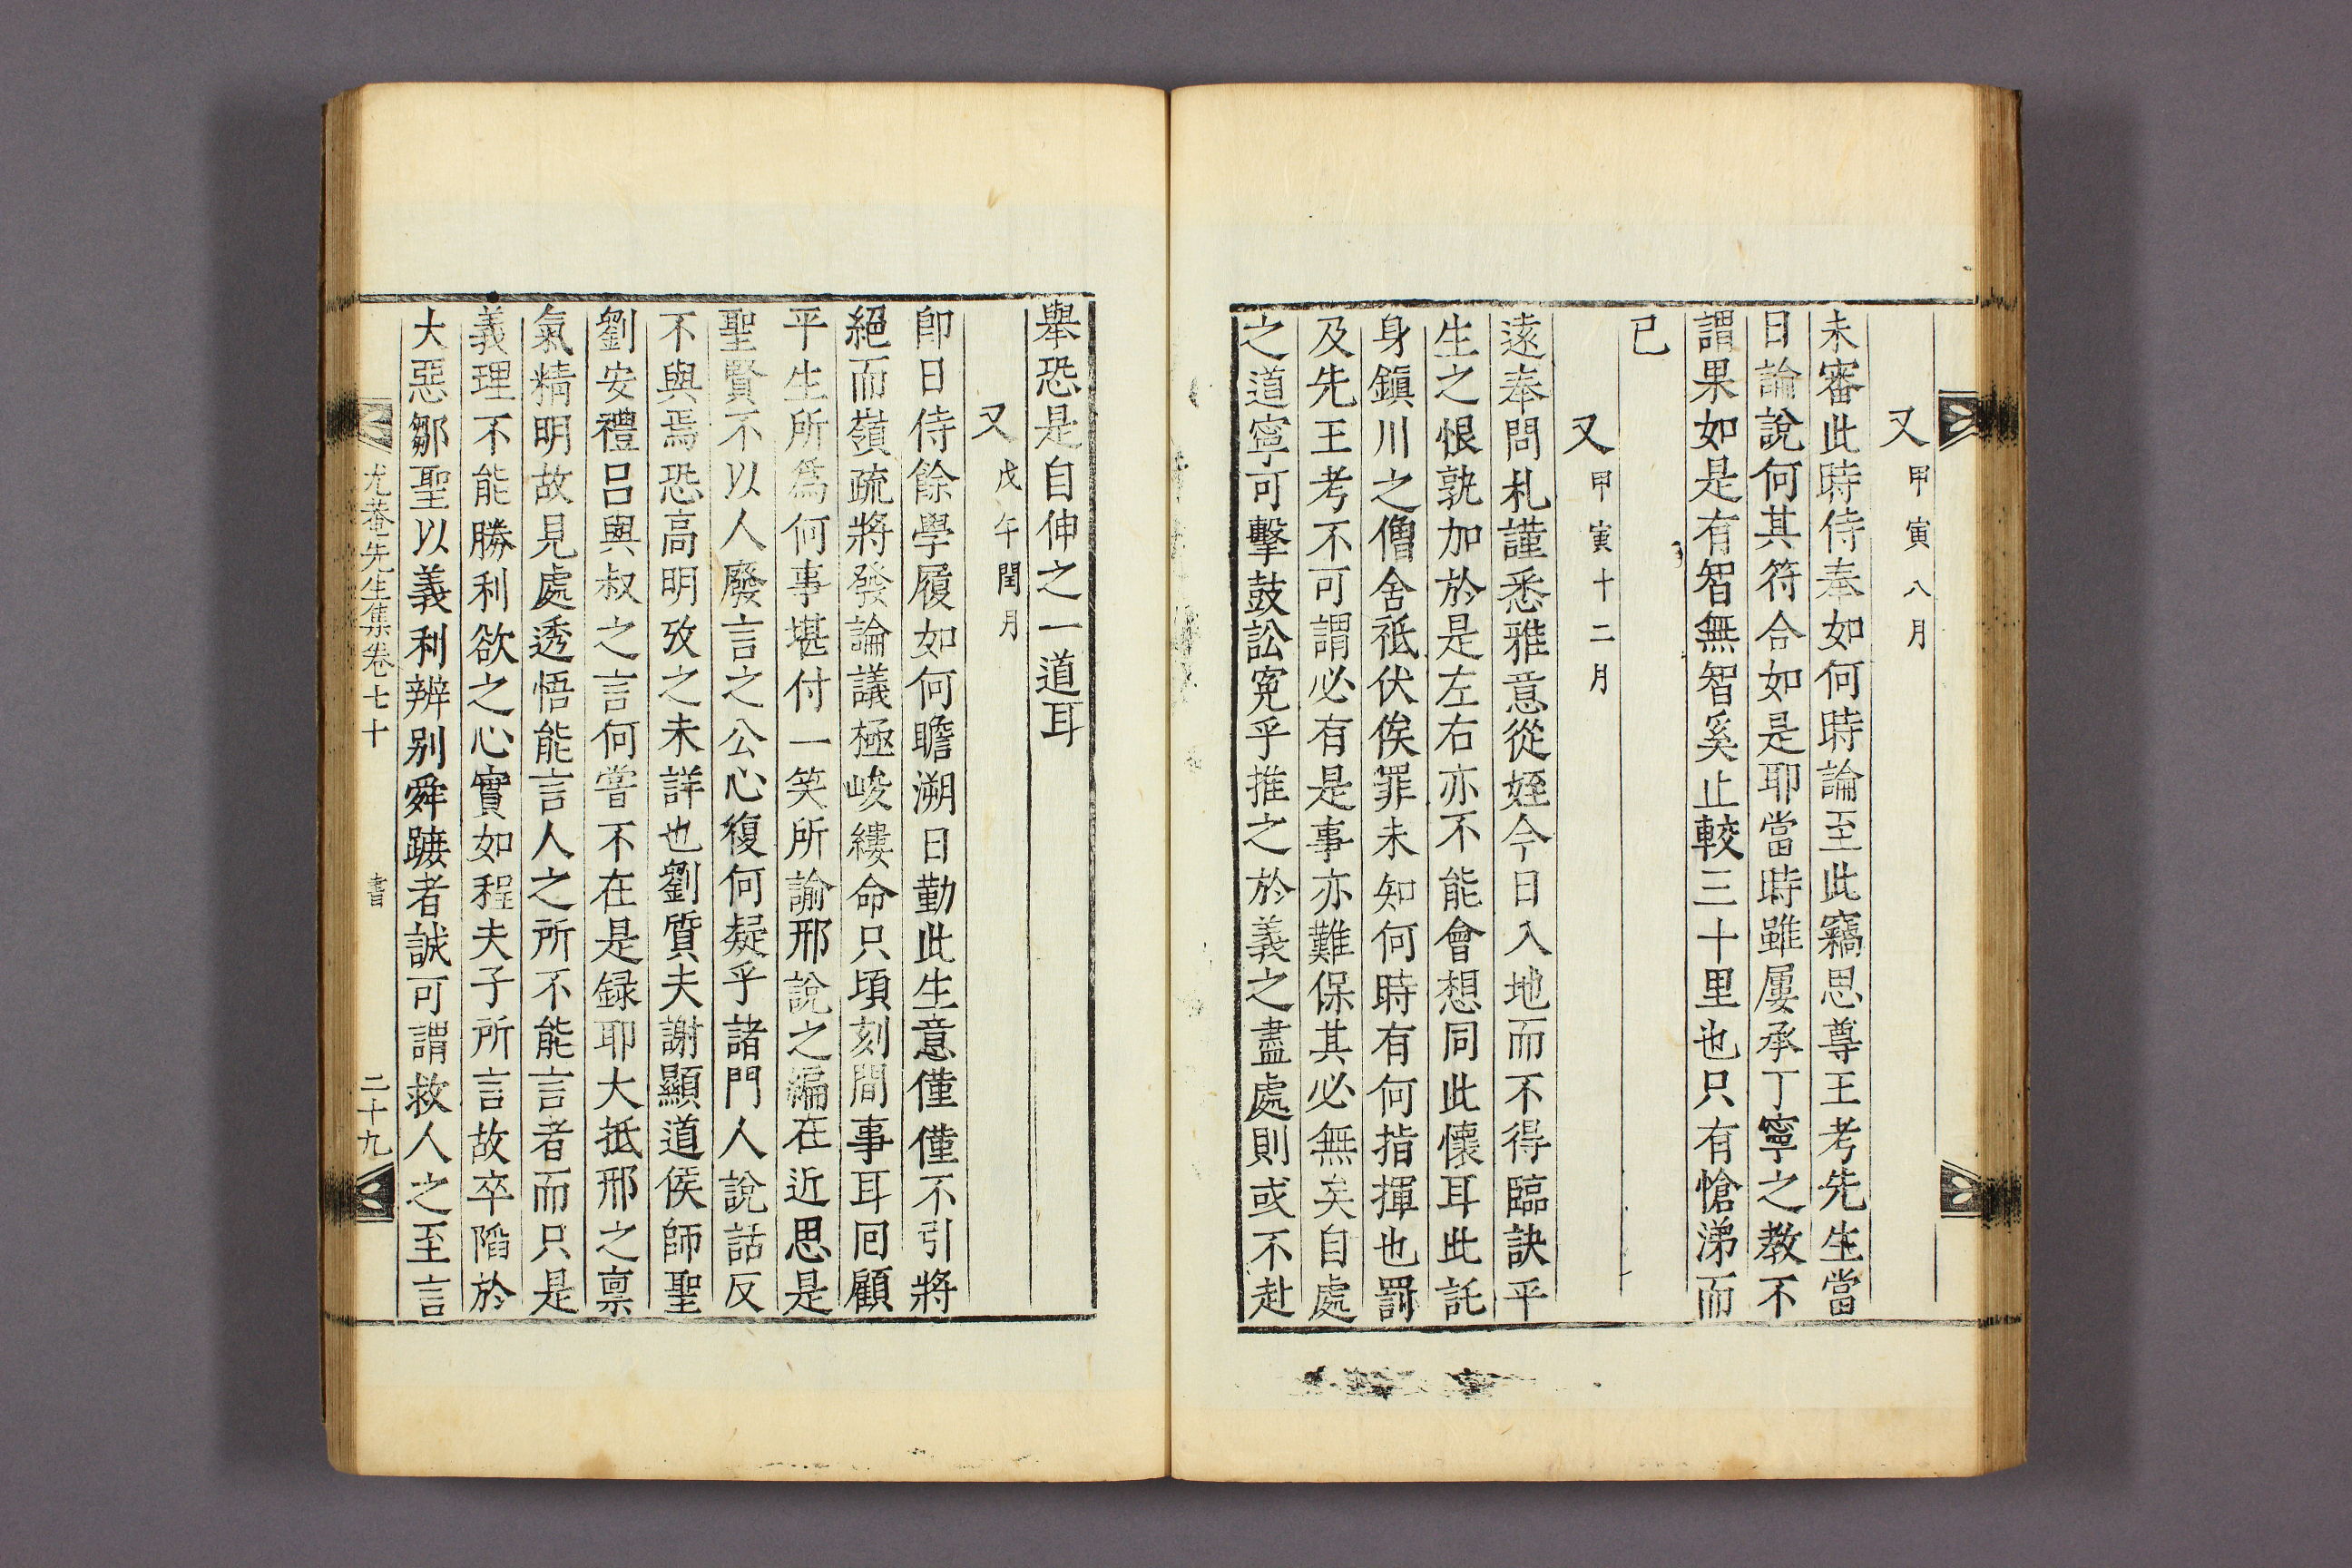 又甲寅八月
未審此時侍奉如何時論至此竊思尊王考先生當
日論說何其符合如是耶當時雖屢承丁寧之教不
謂果如是有智無智奚止較三十里也只有愴涕而
已
又甲寅十二月
遠奉問札謹悉雅意從姪今日入地而不得臨訣平
生之恨孰加於是左右亦不能會想同此懷耳此託
身鎭川之僧舍祗伏俟罪未知何時有何指揮也罰
及先王考不可謂必有是事亦難保其必無矣自處
之道寧可擊鼓訟冤乎推之於義之盡處則或不赴
擧恐是自伸之一道耳
又戊午閏月
卽日侍餘學履如何瞻溯日勤此生意僅僅不引將
絕而嶺疏將發論議極峻縷命只頃刻間事耳回顧
平生所爲何事堪付一笑所諭邢說之編在近思是
聖賢不以人廢言之公心復何疑乎諸門人說話反
不與焉恐高明攷之未詳也劉質夫謝顯道侯師聖
劉安禮呂與叔之言何嘗不在是録耶大抵邢之稟
氣精明故見處透悟能言人之所不能言者而只是
義理不能勝利欲之心實如程夫子所言故卒陷於
大惡鄒聖以義利辨别舜蹠者誠可謂救人之至言
尤菴先生集卷七十 書 二十九